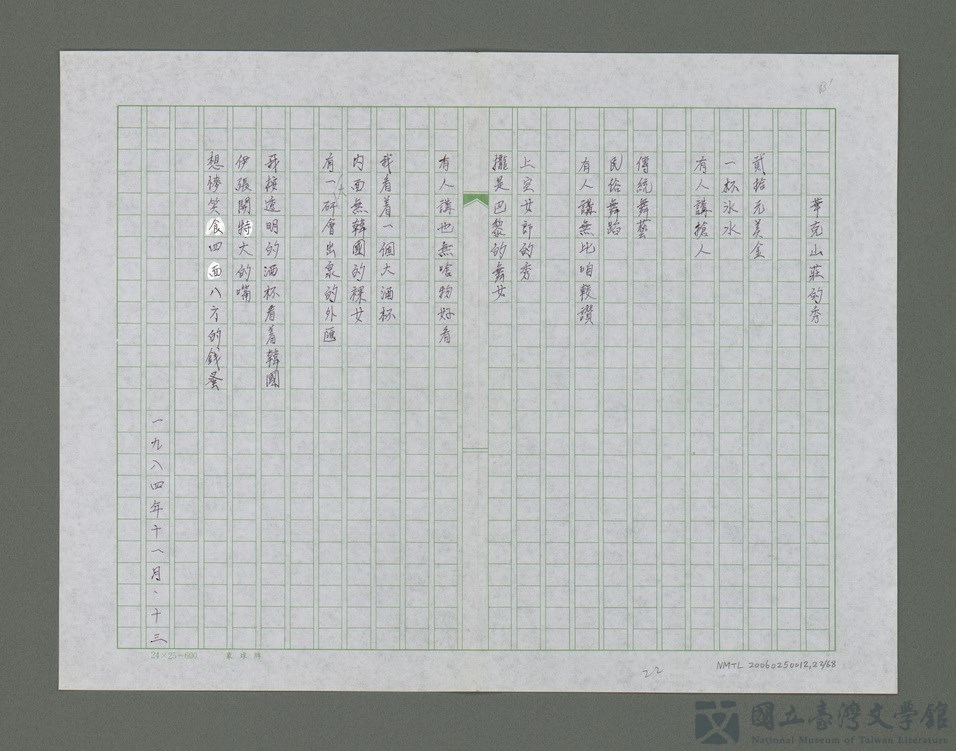 華克山莊的秀
貳拾元美金
一杯冰水
有人講搶人
傳統舞藝
民俗舞蹈
有人講無比咱較讚
上空女郎的秀
攏是巴黎的舞女
有人講也無啥物好看
我看着一個大酒杯
內面無韓國的裸女
有一大矸會出泉的外匯
我按透明的酒杯看着韓國
伊張開特大的嘴
想愽笑食四面八方的錢蚤
一九八四年十一月、十三
24×25=600
22
NMTL 20060250012,23/68
國立臺灣文學館
National Museum of Taiwan Literature